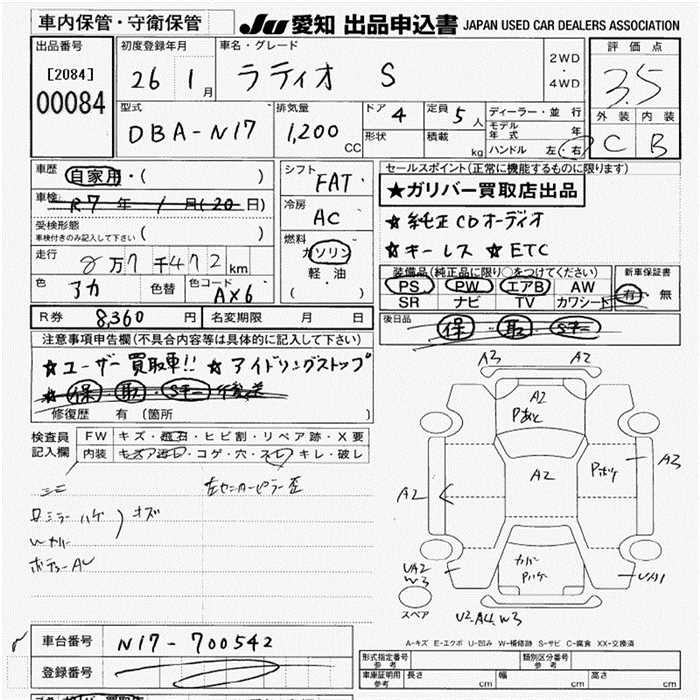 車内保管・守衛保管
JU 愛知 出品申込書 JAPAN USED CAR DEALERS ASSOCIATION
出品番号
[2084]
00084
初度登録年月
26 1月
車名・グレード
ラティオ S
2WD
・
4WD
評価点
3.5
外装 内装
C B
型式
DBA-N17
排気量
1,200 CC
ドア 4
形状
定員 5人
積載 kg
ディーラー・並行
モデル年式 年
ハンドル 左・右
車歴
自家用・( )
車検 R7年 1月(20日)
受検形態
車検付きのみ記入して下さい ( )
走行
8万7千472km
色 アカ 色替 色コード AX6
シフト
FAT
冷房
AC
燃料
ガソリン
軽油
( )
セールスポイント(正常に機能するものに限ります)
★ガリバー買取店出品
★純正CDオーディオ
★キーレス ★ETC
装備品(純正品に限り○をつけてください)
PS PW エアB AW
SR ナビ TV カワシート
新車保証書
有・無
R券 8,360円 名変期限 月 日
後日品 保・取・Sキー
注意事項申告欄(不具合内容等は具体的に記入して下さい)
★ユーザー買取車!! ★アイドリングストップ
★保・取・Sキー後送
修復歴 有 (箇所 )
検査員
記入欄
FW キズ・飛石・ヒビ割・リペア跡・X要
内装 キズ・コゲ・穴・スレ・キレ・破レ
左センターピラー歪
ロミラーハゲ
オズ
A3 A2
A2
A2
A2
A3
UA2
W3
スペア
U2-A4 W3
UA1
A-キズ E-エクボ U-凹み W-補修跡 S-サビ C-腐食 XX-交換済
車台番号 N17-700542
登録番号
形式指定番号
参考
類別区分番号
参考
車庫証明用
参考
長さ cm 幅 cm 高さ cm